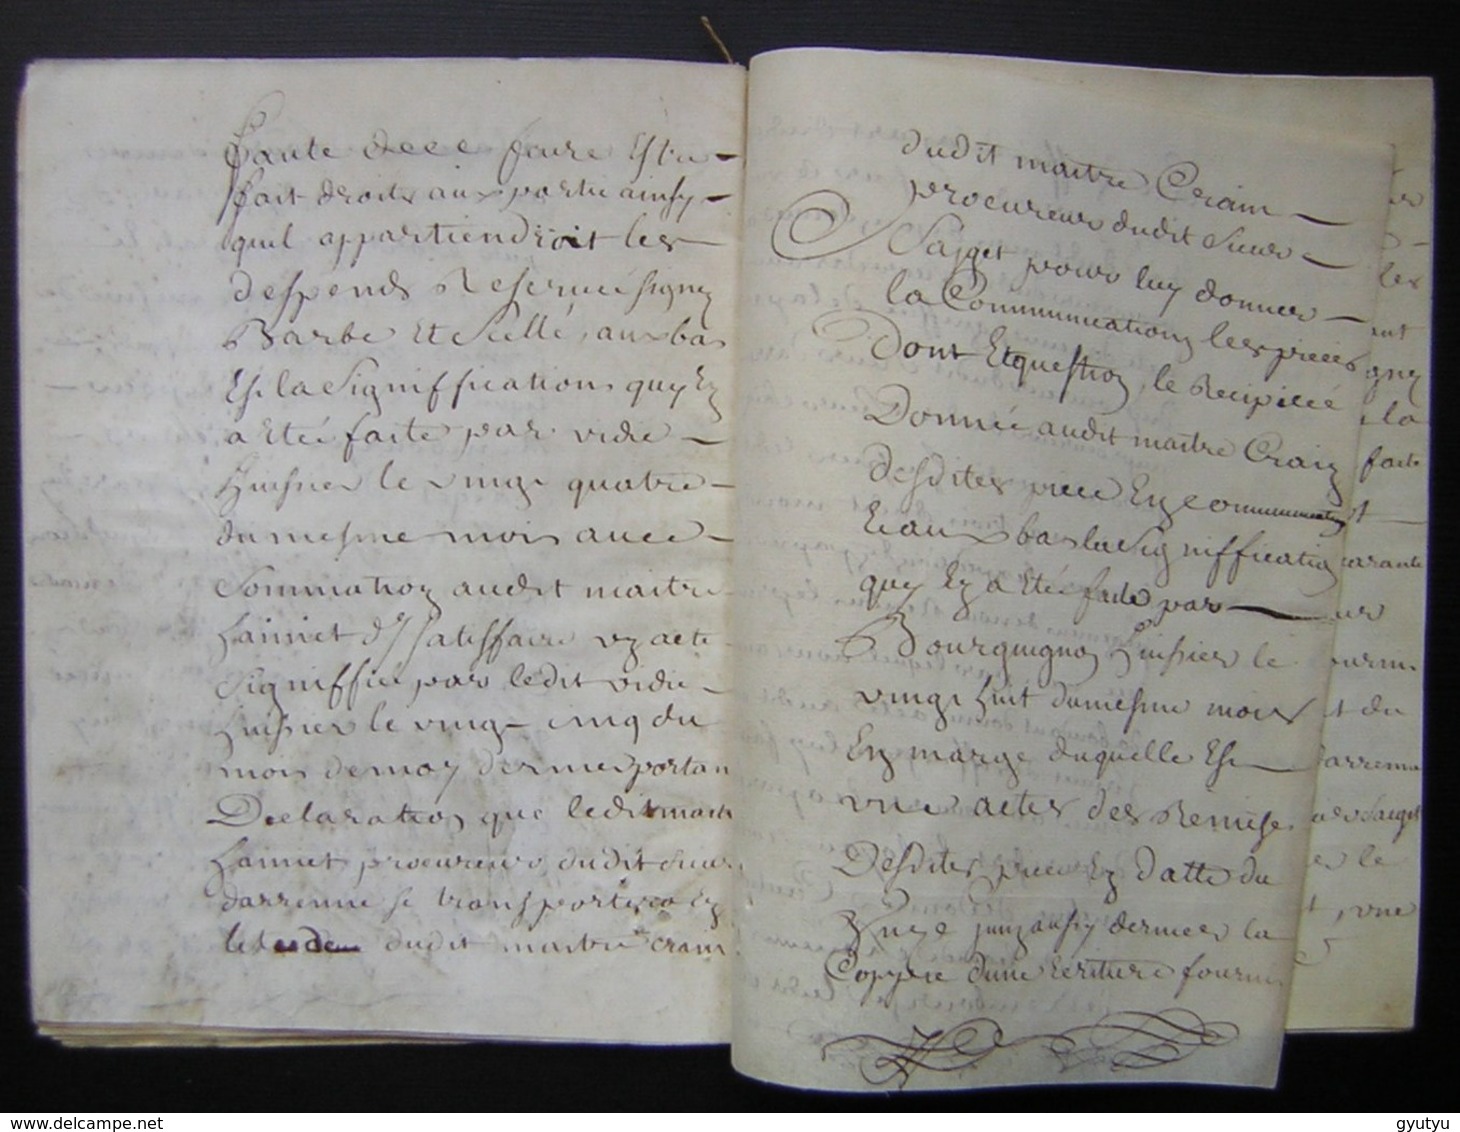 faute dece faire Estre
fait droits aux partie ainsy
quil appartiendroit les
despends Reservé signez
Barbe Et Scellé, aux bas
Est la Signiffication quy En
a Eté faite par vidie
huissier le vingt quatre
du mesme mois avec
Sommation audit maitre
hainiet dy satisffaire un acte
signiffié par ledit vidie
huissier le vingt cinq du
mois de may dernier portan
Declaration que ledit maitre
hainiet procureur dudit Sieur
darrenne se transportera En
dudit maitre Crain
dudit maitre Crain
procureur dudit Sieur
Sajget pour luy donner
la Communication les pieces
Dont Et question, le Recipicé
Donnée audit maitre Crain
desdites piece En communication
Et aux bas la Signiffication
quy En a Eté faite par
Bourguignon huissier le
vingt huit du mesme mois
En marge duquelle Est
une actes des Remise
Desdites piece En datte du
onze juin aussy dernier la
Coppie dune Ecriture fourni
les
la
faite
quarante
fourni
et du
darrenne
Sajget
le
, une
gyutyu